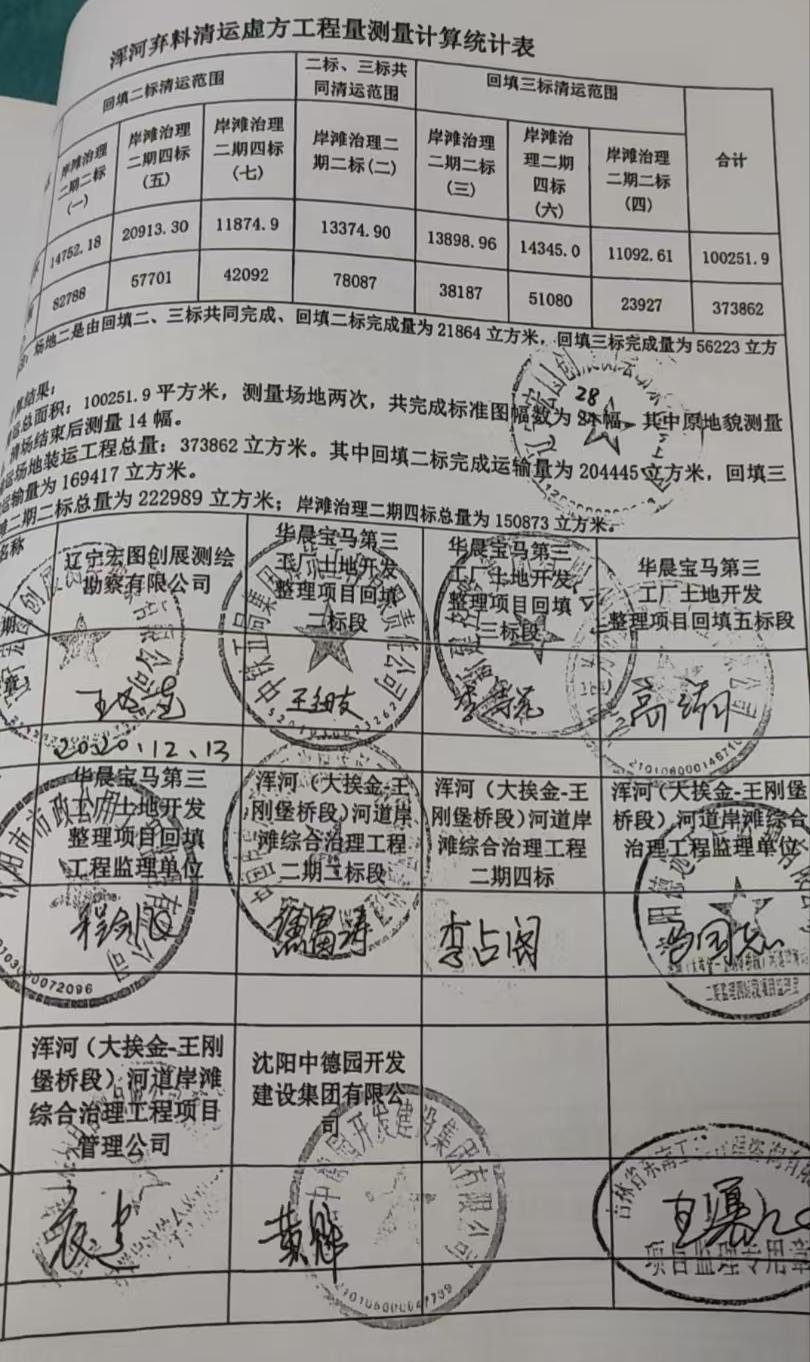 浑河弃料清运虚方工程量测量计算统计表
回填二标清运范围
二标、三标共
同清运范围
回填三标清运范围
合计
岸滩治理
二期二标
(一)
岸滩治理
二期四标
(五)
岸滩治理
二期四标
(七)
岸滩治理二
期二标(二)
岸滩治理
二期二标
(三)
岸滩治
理二期
四标
(六)
岸滩治理
二期二标
(四)
14752.18 20913.30 11874.9 13374.90 13898.96 14345.0 11092.61 100251.9
82788 57701 42092 78087 38187 51080 23927 373862
场地二是由回填二、三标共同完成、回填二标完成量为21864立方米，回填三标完成量为56223立方
算结果：
总面积：100251.9平方米，测量场地两次，共完成标准图幅数为 28 幅，其中原地貌测量
场结束后测量14幅。
运场地装运工程总量：373862立方米。其中回填二标完成运输量为204445立方米，回填三
运输量为169417立方米。
二期二标总量为222989立方米；岸滩治理二期四标总量为150873立方米。
名称
辽宁宏图创展测绘
勘察有限公司
华晨宝马第三
工厂土地开发
整理项目回填
二标段
华晨宝马第三
工厂土地开发
整理项目回填
三标段
华晨宝马第三
工厂土地开发
整理项目回填五标段
期
2020.12.13
华晨宝马第三
工厂土地开发
整理项目回填
工程监理单位
浑河（大挨金-王
刚堡桥段）河道岸
滩综合治理工程
二期二标段
浑河（大挨金-王
刚堡桥段）河道岸
滩综合治理工程
二期四标
浑河（大挨金-王刚堡
桥段）河道岸滩综合
治理工程监理单位
李占阁
浑河（大挨金-王刚
堡桥段）河道岸滩
综合治理工程项目
管理公司
沈阳中德园开发
建设集团有限公
司
项目监理专用章